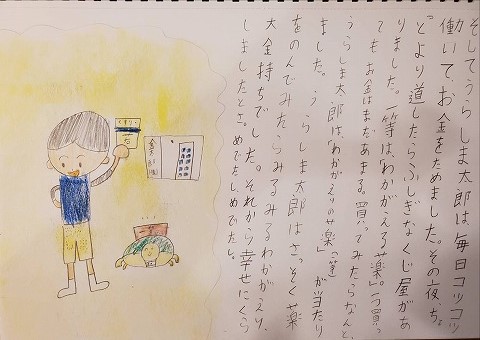 そしてうらしま太郎は毎日コツコツ
働いて、お金をためました。その夜、ちょ
っとより道したらふしぎなくじ屋があ
りました。一等は、「わかがえる薬」。一つ買っ
てもお金はまだあまる。買ってみたらなんと、
うらしま太郎は、「わかがえりの薬」(一等)が当たり
ました。うらしま太郎はさっそく薬
をのんでみたらみるみるわかがえり、
大金持ちでした。それから幸せにくら
しましたとさ。めでたしめでたし。
くすり
若